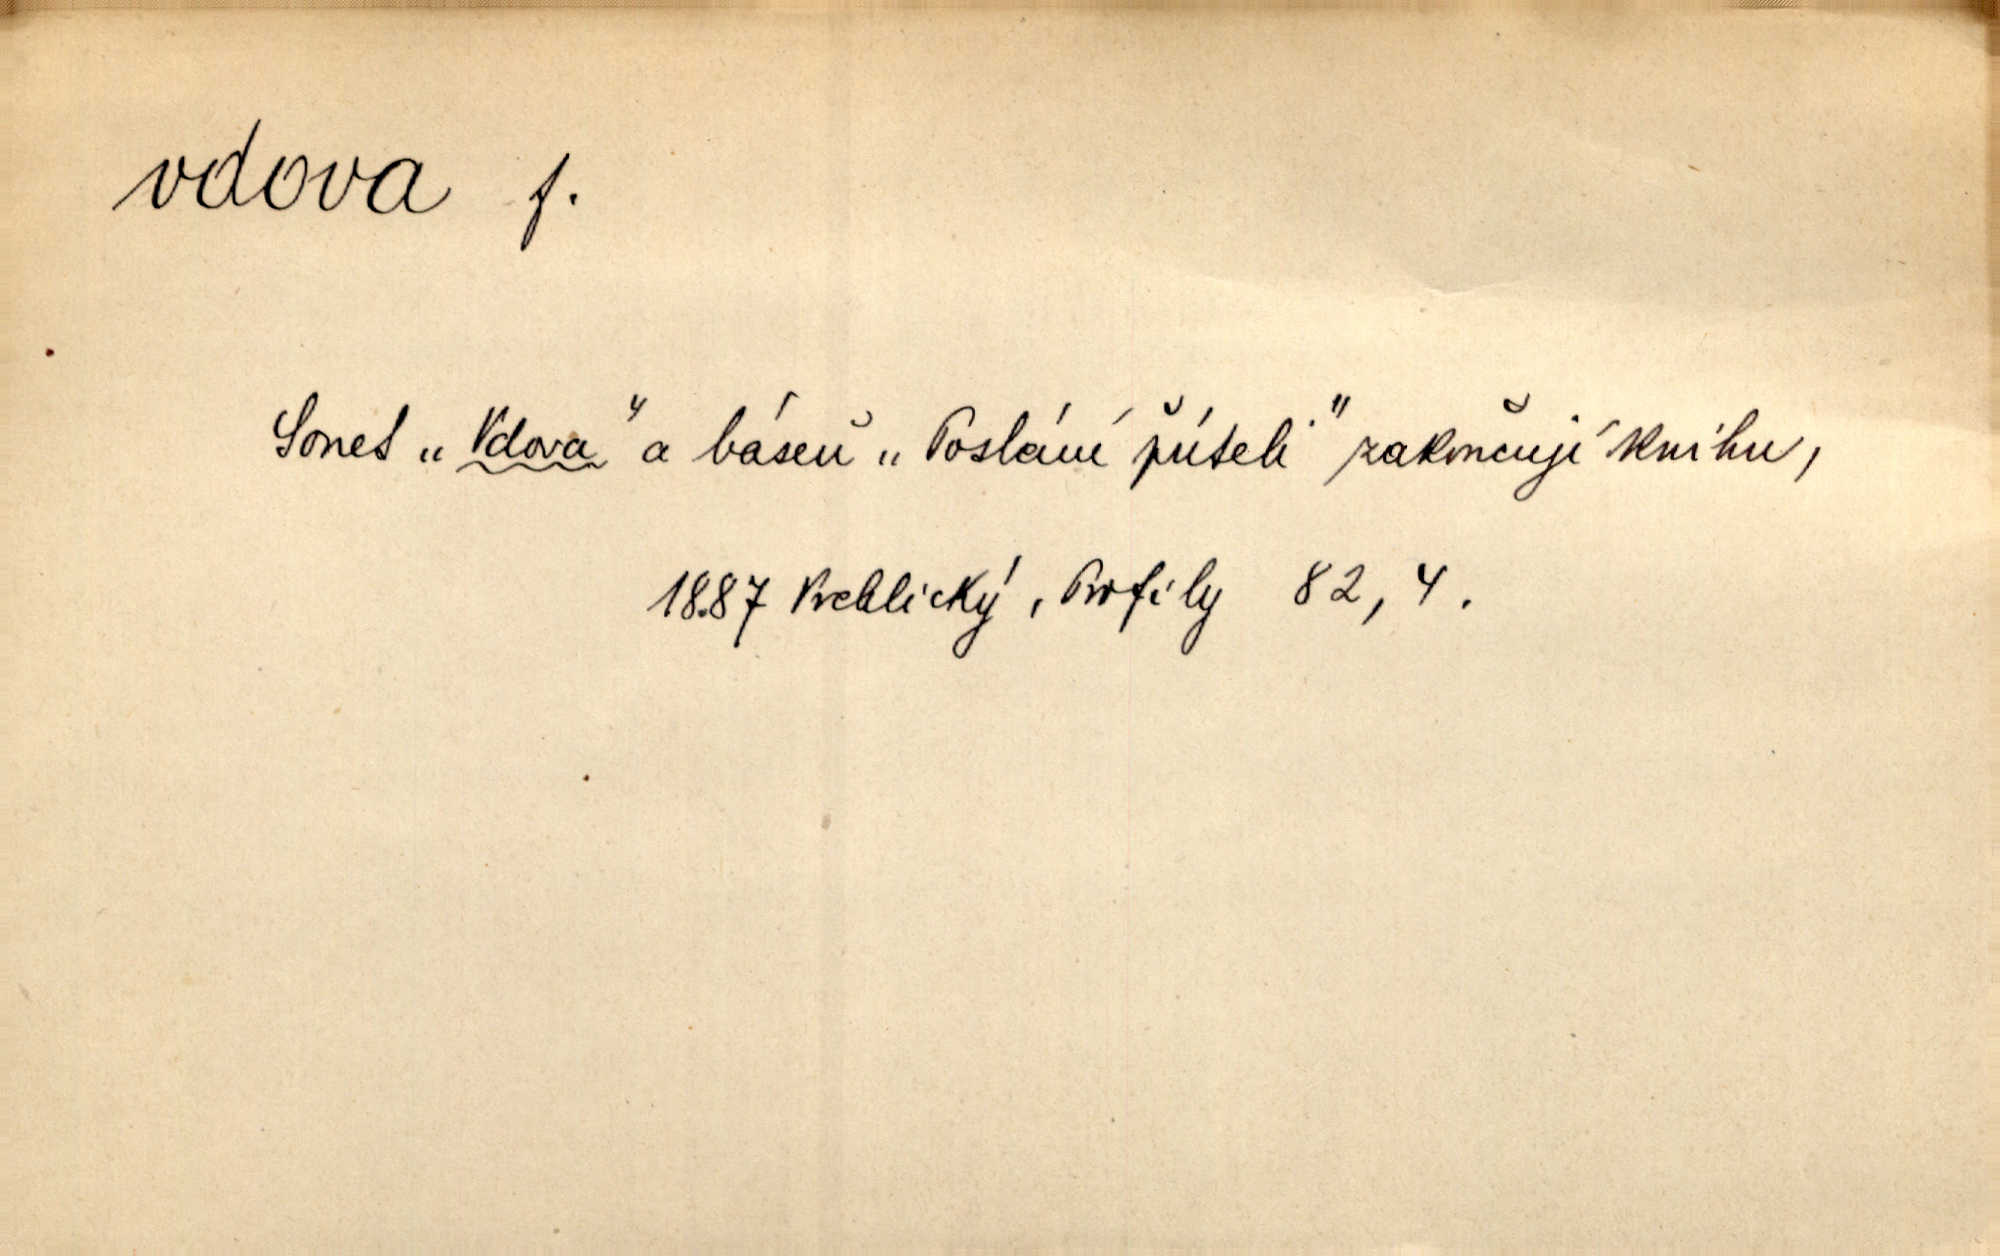 vdova f.
Sonet „Vdova" a báseň „Poslání příteli" zakončují knihu,
1887 Vrchlický, Profily 82, 4.